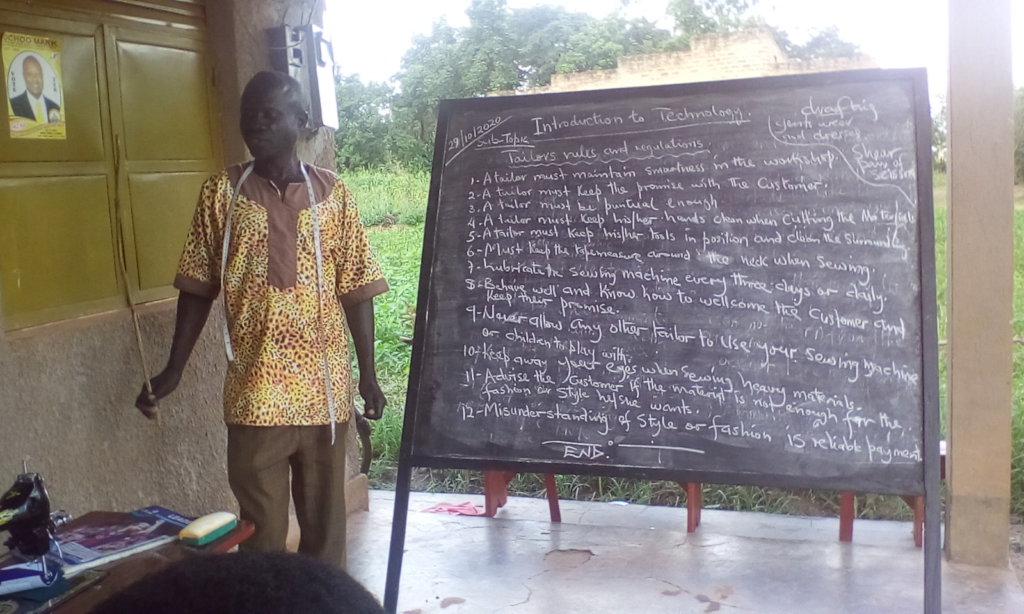 OCHOO MARK
VOTE
29/10/2020
Introduction to Technology.
Sub-Topic
Tailors rules and regulations.
drafting
sport wear
and dresses
1- A tailor must maintain smartness in the workshop.
2- A tailor must keep the promise with the Customer.
3- A tailor must be puntual enough
4- A tailor must keep his/her hands clean when cutting the Materials
5- A tailor must keep his/her tools in position and clean the Surrounding
6- Must keep the tapemeasure around the neck when sewing.
7- Lubricate the sewing machine every three days or daily.
8- Behave well and know how to wellcome the Customer and
keep their promise.
9- Never allow any other tailor to use your sewing machine
or children to play with.
10- Keep away your eyes when sewing heavy materials.
11- Advise the Customer if the material is not enough for the
fashion or style he/she wants.
12- Misunderstanding of style or fashion is reliable payment
END: